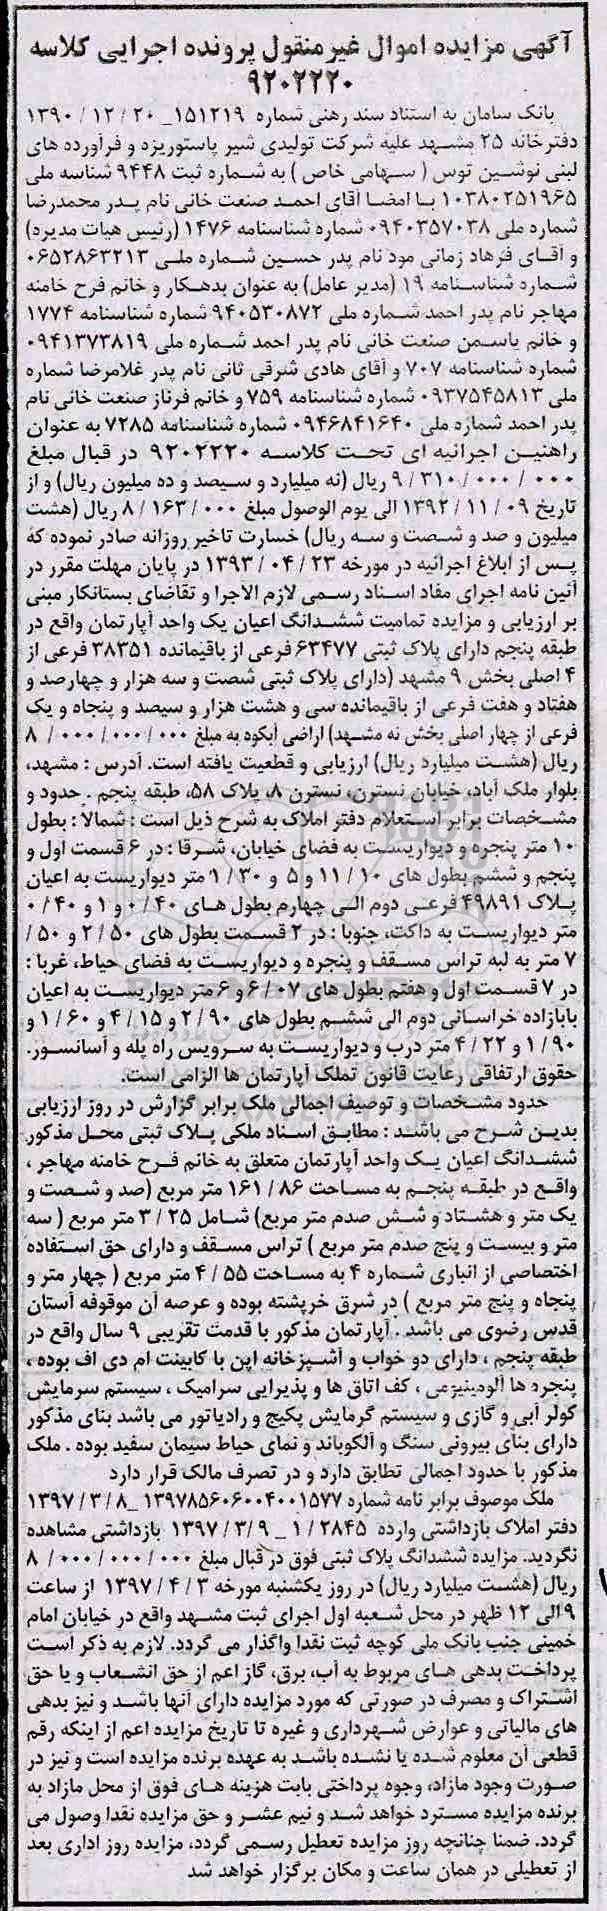 آگهی مزایده اموال غیرمنقول پرونده اجرایی کلاسه
۹۲۰۲۲۲۰
بانک سامان به استناد سند رهنی شماره ۱۵۱۲۱۹_ ۲۰ / ۱۲ / ۱۳۹۰
دفترخانه ۲۵ مشهد علیه شرکت تولیدی شیر پاستوریزه و فرآورده های
لبنی نوشین توس ( سهامی خاص ) به شماره ثبت ۹۴۴۸ شناسه ملی
۱۰۳۸۰۲۵۱۹۶۵ با امضا آقای احمد صنعت خانی نام پدر محمدرضا
شماره ملی ۰۹۴۰۳۵۷۰۳۸ شماره شناسنامه ۱۴۷۶ (رئیس هیات مدیره)
و آقای فرهاد زمانی مود نام پدر حسین شماره ملی ۰۶۵۲۸۶۳۲۱۳
شماره شناسنامه ۱۹ (مدیر عامل) به عنوان بدهکار و خانم فرح خامنه
مهاجر نام پدر احمد شماره ملی ۹۴۰۵۳۰۸۷۲ شماره شناسنامه ۱۷۷۴
و خانم یاسمن صنعت خانی نام پدر احمد شماره ملی ۰۹۴۱۳۷۳۸۱۹
شماره شناسنامه ۷۰۷ و آقای هادی شرقی ثانی نام پدر غلامرضا شماره
ملی ۰۹۳۷۵۴۵۸۱۳ شماره شناسنامه ۷۵۹ و خانم فرناز صنعت خانی نام
پدر احمد شماره ملی ۰۹۴۶۸۴۱۶۴۰ شماره شناسنامه ۷۲۸۵ به عنوان
راهنین اجرائیه ای تحت کلاسه ۹۲۰۲۲۲۰ در قبال مبلغ
۰۰۰ / ۰۰۰ / ۳۱۰ / ۹ ریال (نه میلیارد و سیصد و ده میلیون ریال) و از
تاریخ ۰۹ / ۱۱ / ۱۳۹۲ الی یوم الوصول مبلغ ۰۰۰ / ۱۶۳ / ۸ ریال (هشت
میلیون و صد و شصت و سه ریال) خسارت تاخیر روزانه صادر نموده که
پس از ابلاغ اجرائیه در مورخه ۲۳ / ۰۴ / ۱۳۹۳ در پایان مهلت مقرر در
آئین نامه اجرای مفاد اسناد رسمی لازم الاجرا و تقاضای بستانکار مبنی
بر ارزیابی و مزایده تمامیت ششدانگ اعیان یک واحد آپارتمان واقع در
طبقه پنجم دارای پلاک ثبتی ۶۳۴۷۷ فرعی از باقیمانده ۳۸۳۵۱ فرعی از
۴ اصلی بخش ۹ مشهد (دارای پلاک ثبتی شصت و سه هزار و چهارصد و
هفتاد و هفت فرعی از باقیمانده سی و هشت هزار و سیصد و پنجاه و یک
فرعی از چهار اصلی بخش نه مشهد) اراضی آبکوه به مبلغ ۰۰۰ / ۰۰۰ / ۰۰۰ / ۸
ریال (هشت میلیارد ریال) ارزیابی و قطعیت یافته است. آدرس : مشهد،
بلوار ملک آباد، خیابان نسترن، نسترن ۸، پلاک ۵۸، طبقه پنجم . حدود و
مشخصات برابر استعلام دفتر املاک به شرح ذیل است : شمالا : بطول
۱۰ متر پنجره و دیواریست به فضای خیابان، شرقا : در ۶ قسمت اول و
پنجم و ششم بطول های ۱۰ / ۱۱ و ۵ و ۳۰ / ۱ متر دیواریست به اعیان
پلاک ۴۹۸۹۱ فرعی دوم الی چهارم بطول های ۴۰ / ۰ و ۱ و ۴۰ / ۰
متر دیواریست به داکت، جنوبا : در ۲ قسمت بطول های ۵۰ / ۲ و ۵۰ /
۷ متر به لبه تراس مسقف و پنجره و دیواریست به فضای حیاط، غربا :
در ۷ قسمت اول و هفتم بطول های ۰۷ / ۶ و ۶ متر دیواریست به اعیان
بابازاده خراسانی دوم الی ششم بطول های ۹۰ / ۲ و ۱۵ / ۴ و ۶۰ / ۱ و
۹۰ / ۱ و ۲۲ / ۴ متر درب و دیواریست به سرویس راه پله و آسانسور.
حقوق ارتفاقی رعایت قانون تملک آپارتمان ها الزامی است.
حدود مشخصات و توصیف اجمالی ملک برابر گزارش در روز ارزیابی
بدین شرح می باشد : مطابق اسناد ملکی پلاک ثبتی محل مذکور
ششدانگ اعیان یک واحد آپارتمان متعلق به خانم فرح خامنه مهاجر ،
واقع در طبقه پنجم به مساحت ۸۶ / ۱۶۱ متر مربع (صد و شصت و
یک متر و هشتاد و شش صدم متر مربع) شامل ۲۵ / ۳ متر مربع ( سه
متر و بیست و پنج صدم متر مربع ) تراس مسقف و دارای حق استفاده
اختصاصی از انباری شماره ۴ به مساحت ۵۵ / ۴ متر مربع ( چهار متر و
پنجاه و پنج متر مربع ) در شرق خرپشته بوده و عرصه آن موقوفه آستان
قدس رضوی می باشد . آپارتمان مذکور با قدمت تقریبی ۹ سال واقع در
طبقه پنجم ، دارای دو خواب و آشپزخانه اپن با کابینت ام دی اف بوده ،
پنجره ها آلومینیومی ، کف اتاق ها و پذیرایی سرامیک ، سیستم سرمایش
کولر آبی و گازی و سیستم گرمایش پکیج و رادیاتور می باشد بنای مذکور
دارای بنای بیرونی سنگ و آلکوباند و نمای حیاط سیمان سفید بوده . ملک
مذکور با حدود اجمالی تطابق دارد و در تصرف مالک قرار دارد
ملک موصوف برابر نامه شماره ۱۳۹۷۸۵۶۰۶۰۰۴۰۰۱۵۷۷_ ۸ / ۳ / ۱۳۹۷
دفتر املاک بازداشتی وارده ۲۸۴۵ / ۱ _ ۹ / ۳ / ۱۳۹۷ بازداشتی مشاهده
نگردید. مزایده ششدانگ پلاک ثبتی فوق در قبال مبلغ ۰۰۰ / ۰۰۰ / ۰۰۰ / ۸
ریال (هشت میلیارد ریال) در روز یکشنبه مورخه ۳ / ۴ / ۱۳۹۷ از ساعت
۹ الی ۱۲ ظهر در محل شعبه اول اجرای ثبت مشهد واقع در خیابان امام
خمینی جنب بانک ملی کوچه ثبت نقدا واگذار می گردد. لازم به ذکر است
پرداخت بدهی های مربوط به آب، برق، گاز اعم از حق انشعاب و یا حق
اشتراک و مصرف در صورتی که مورد مزایده دارای آنها باشد و نیز بدهی
های مالیاتی و عوارض شهرداری و غیره تا تاریخ مزایده اعم از اینکه رقم
قطعی آن معلوم شده یا نشده باشد به عهده برنده مزایده است و نیز در
صورت وجود مازاد، وجوه پرداختی بابت هزینه های فوق از محل مازاد به
برنده مزایده مسترد خواهد شد و نیم عشر و حق مزایده نقدا وصول می
گردد. ضمنا چنانچه روز مزایده تعطیل رسمی گردد، مزایده روز اداری بعد
از تعطیلی در همان ساعت و مکان برگزار خواهد شد